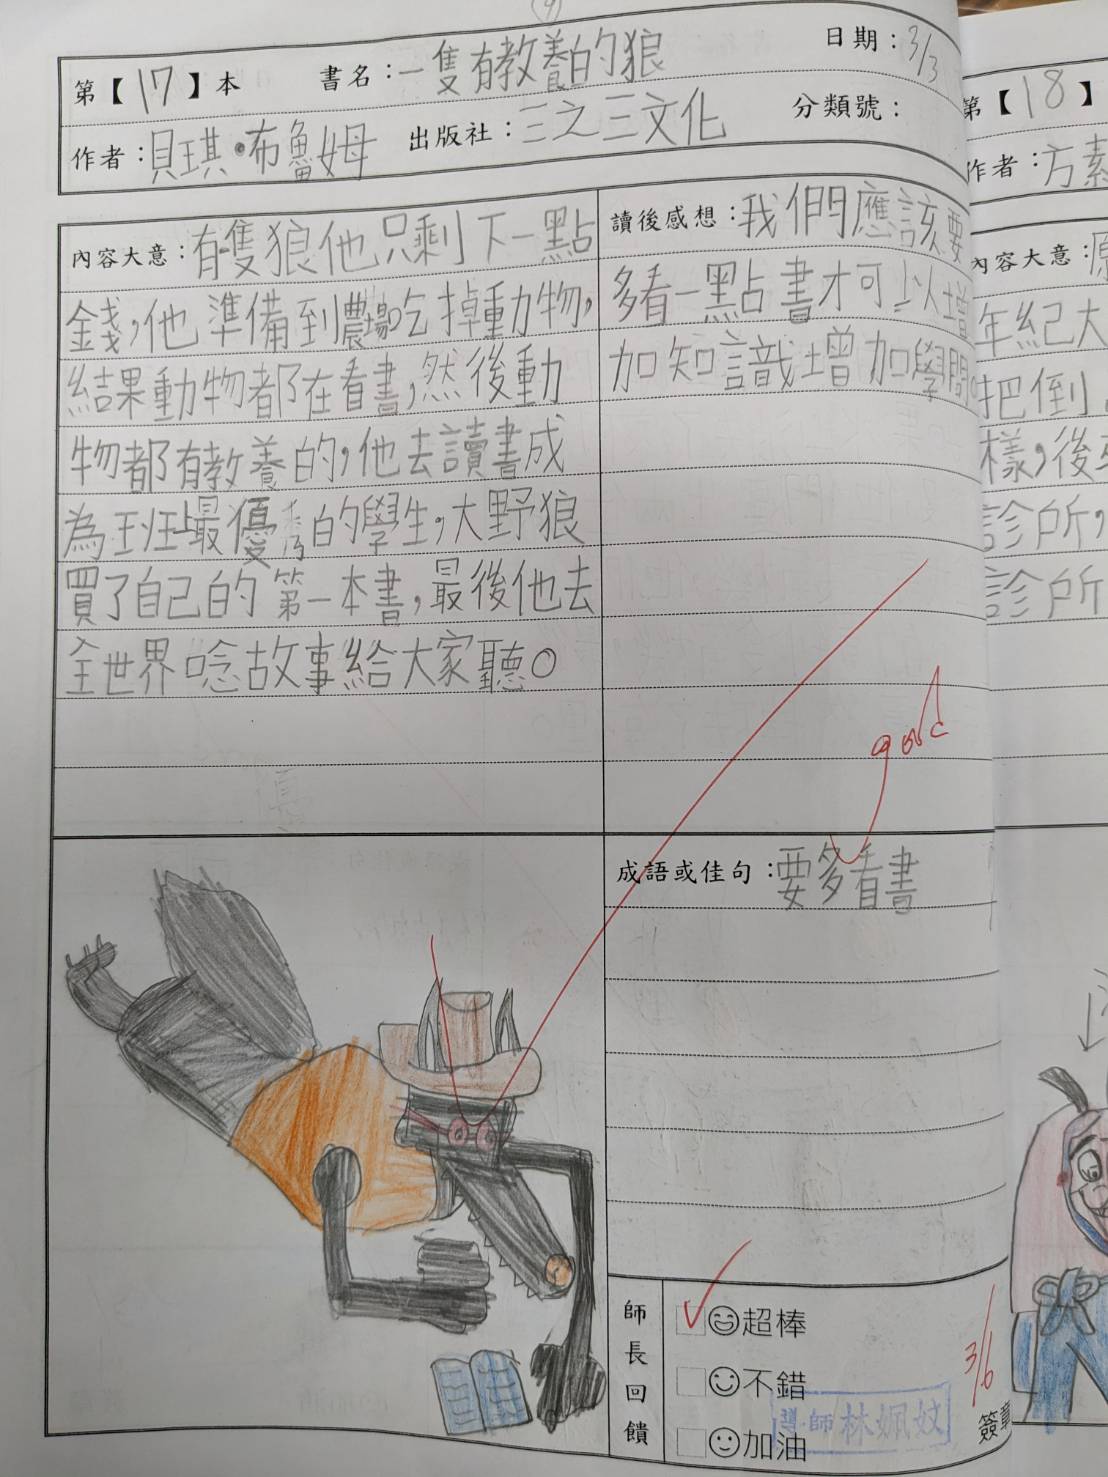 第【17】本 書名：一隻有教養的狼 日期：3/3
作者：貝琪•布魯姆 出版社：三之三文化 分類號：
內容大意：有隻狼他只剩下一點
錢，他準備到農場吃掉動物，
結果動物都在看書，然後動
物都有教養的，他去讀書成
為班上最優秀的學生，大野狼
買了自己的第一本書，最後他去
全世界唸故事給大家聽。
讀後感想：我們應該要
多看一點書才可以增
加知識增加學問。
good
成語或佳句：要多看書
師長回饋
超棒
不錯
加油
3/6
簽章
導師林姵妏
第【18】
作者：方素
內容大意：
年紀大
把倒
樣，後
診所，
診所